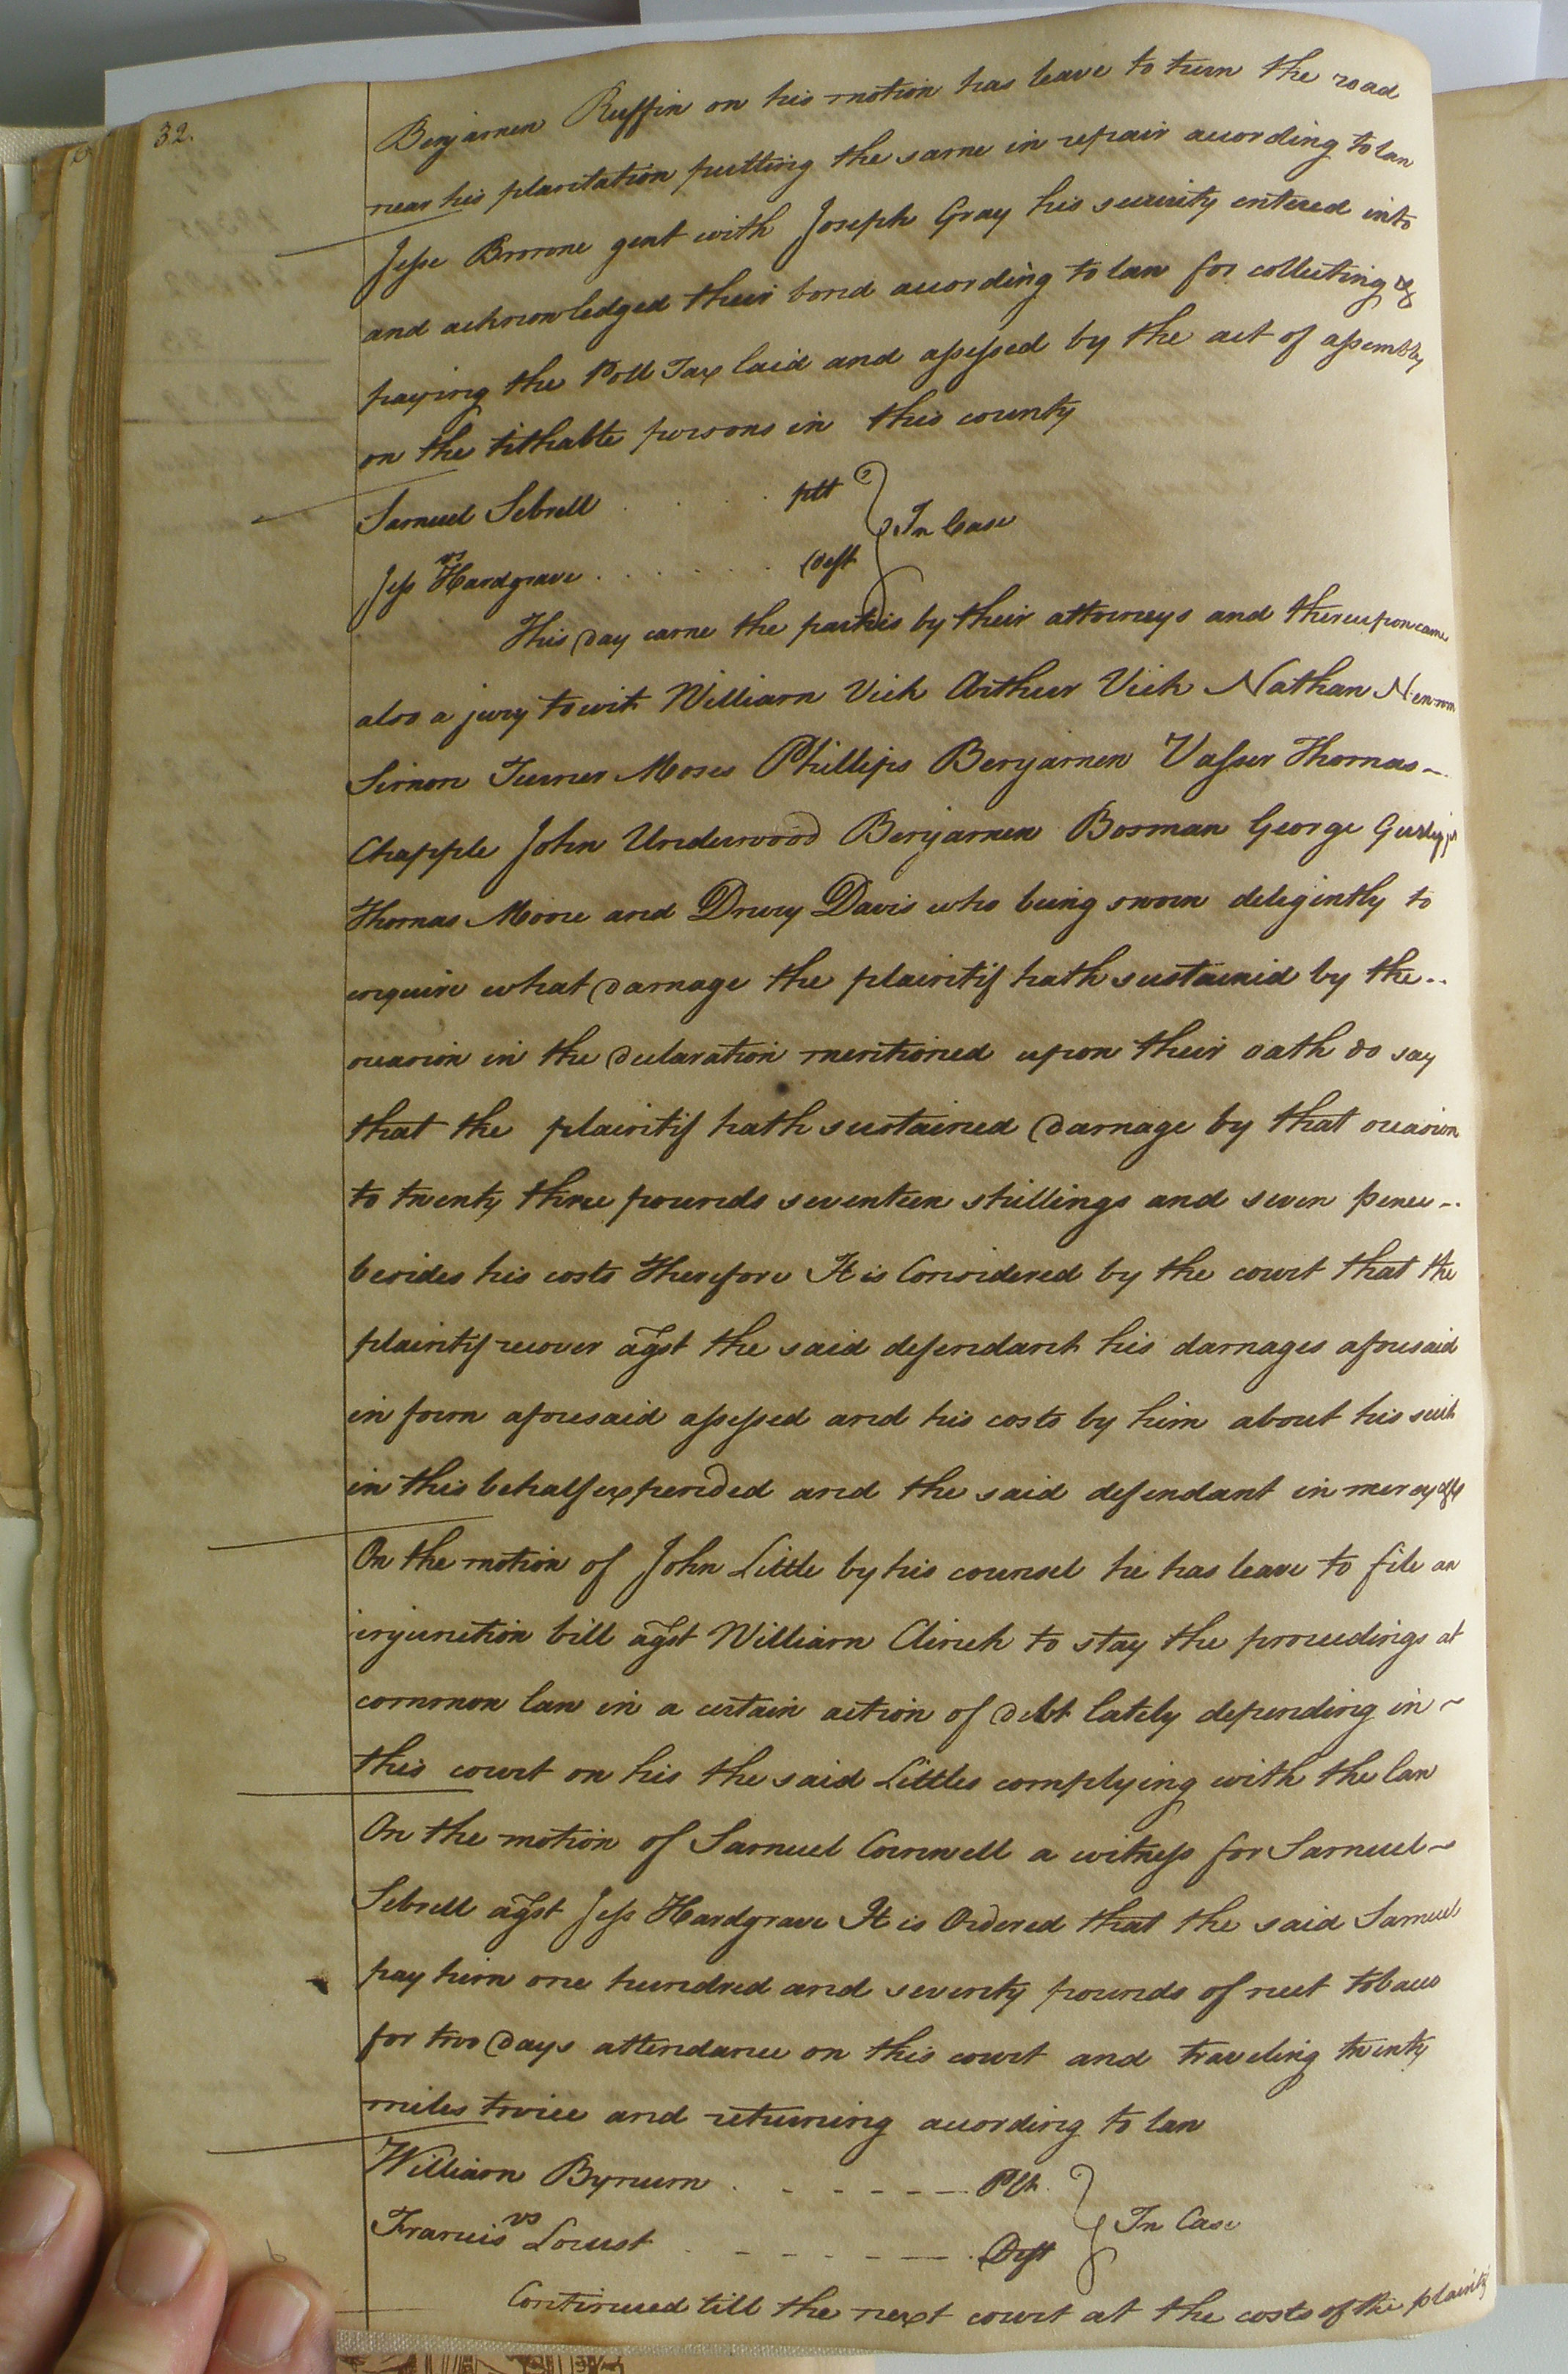 32.
Benjamen Ruffin on his motion has leave to turn the road
near his plantation putting the same in repair according to law
Jesse Browne gent with Joseph Gray his security entered into
and acknowledged their bond according to law for collecting &
paying the Poll Tax laid and assessed by the act of assembly
on the tithable persons in this county
Samuel Sebrell . . . plt
vs } In Case
Jess Hardgrave . . . . . . . Deft
This day came the parties by their attorneys and thereupon came
also a jury towit William Vick Arthur Vick Nathan Newsom
Simon Turner Moses Phillips Benjamen Vasser Thomas
Chapple John Underwood Benjamen Bosman George Gurley jr
Thomas Moore and Drury Davis who being sworn deligently to
enquire what damage the plaintif hath sustained by the
occasion in the declaration mentioned upon their oath do say
that the plaintif hath sustained damage by that occasion
to twenty three pounds seventeen shillings and seven pence
besides his costs Therefore It is Considered by the court that the
plaintif recover agst the said defendant his damages aforesaid
in form aforesaid assessed and his costs by him about his suit
in this behalf expended and the said defendant in mercy &c
On the motion of John Little by his counsel he has leave to file an
injunction bill agst William Clinch to stay the proceedings at
common law in a certain action of debt lately depending in
this court on his the said Littles complying with the law
On the motion of Samuel Cornwell a witness for Samuel
Sebrell agst Jess Hardgrave It is Ordered that the said Samuel
pay him one hundred and seventy pounds of neet tobacco
for two days attendance on this court and traveling twenty
miles twice and returning according to law
William Bynum . - - - - - Plt
vs } In Case
Francis Locust . - - - - - Deft
Continued till the next court at the costs of the plaintif